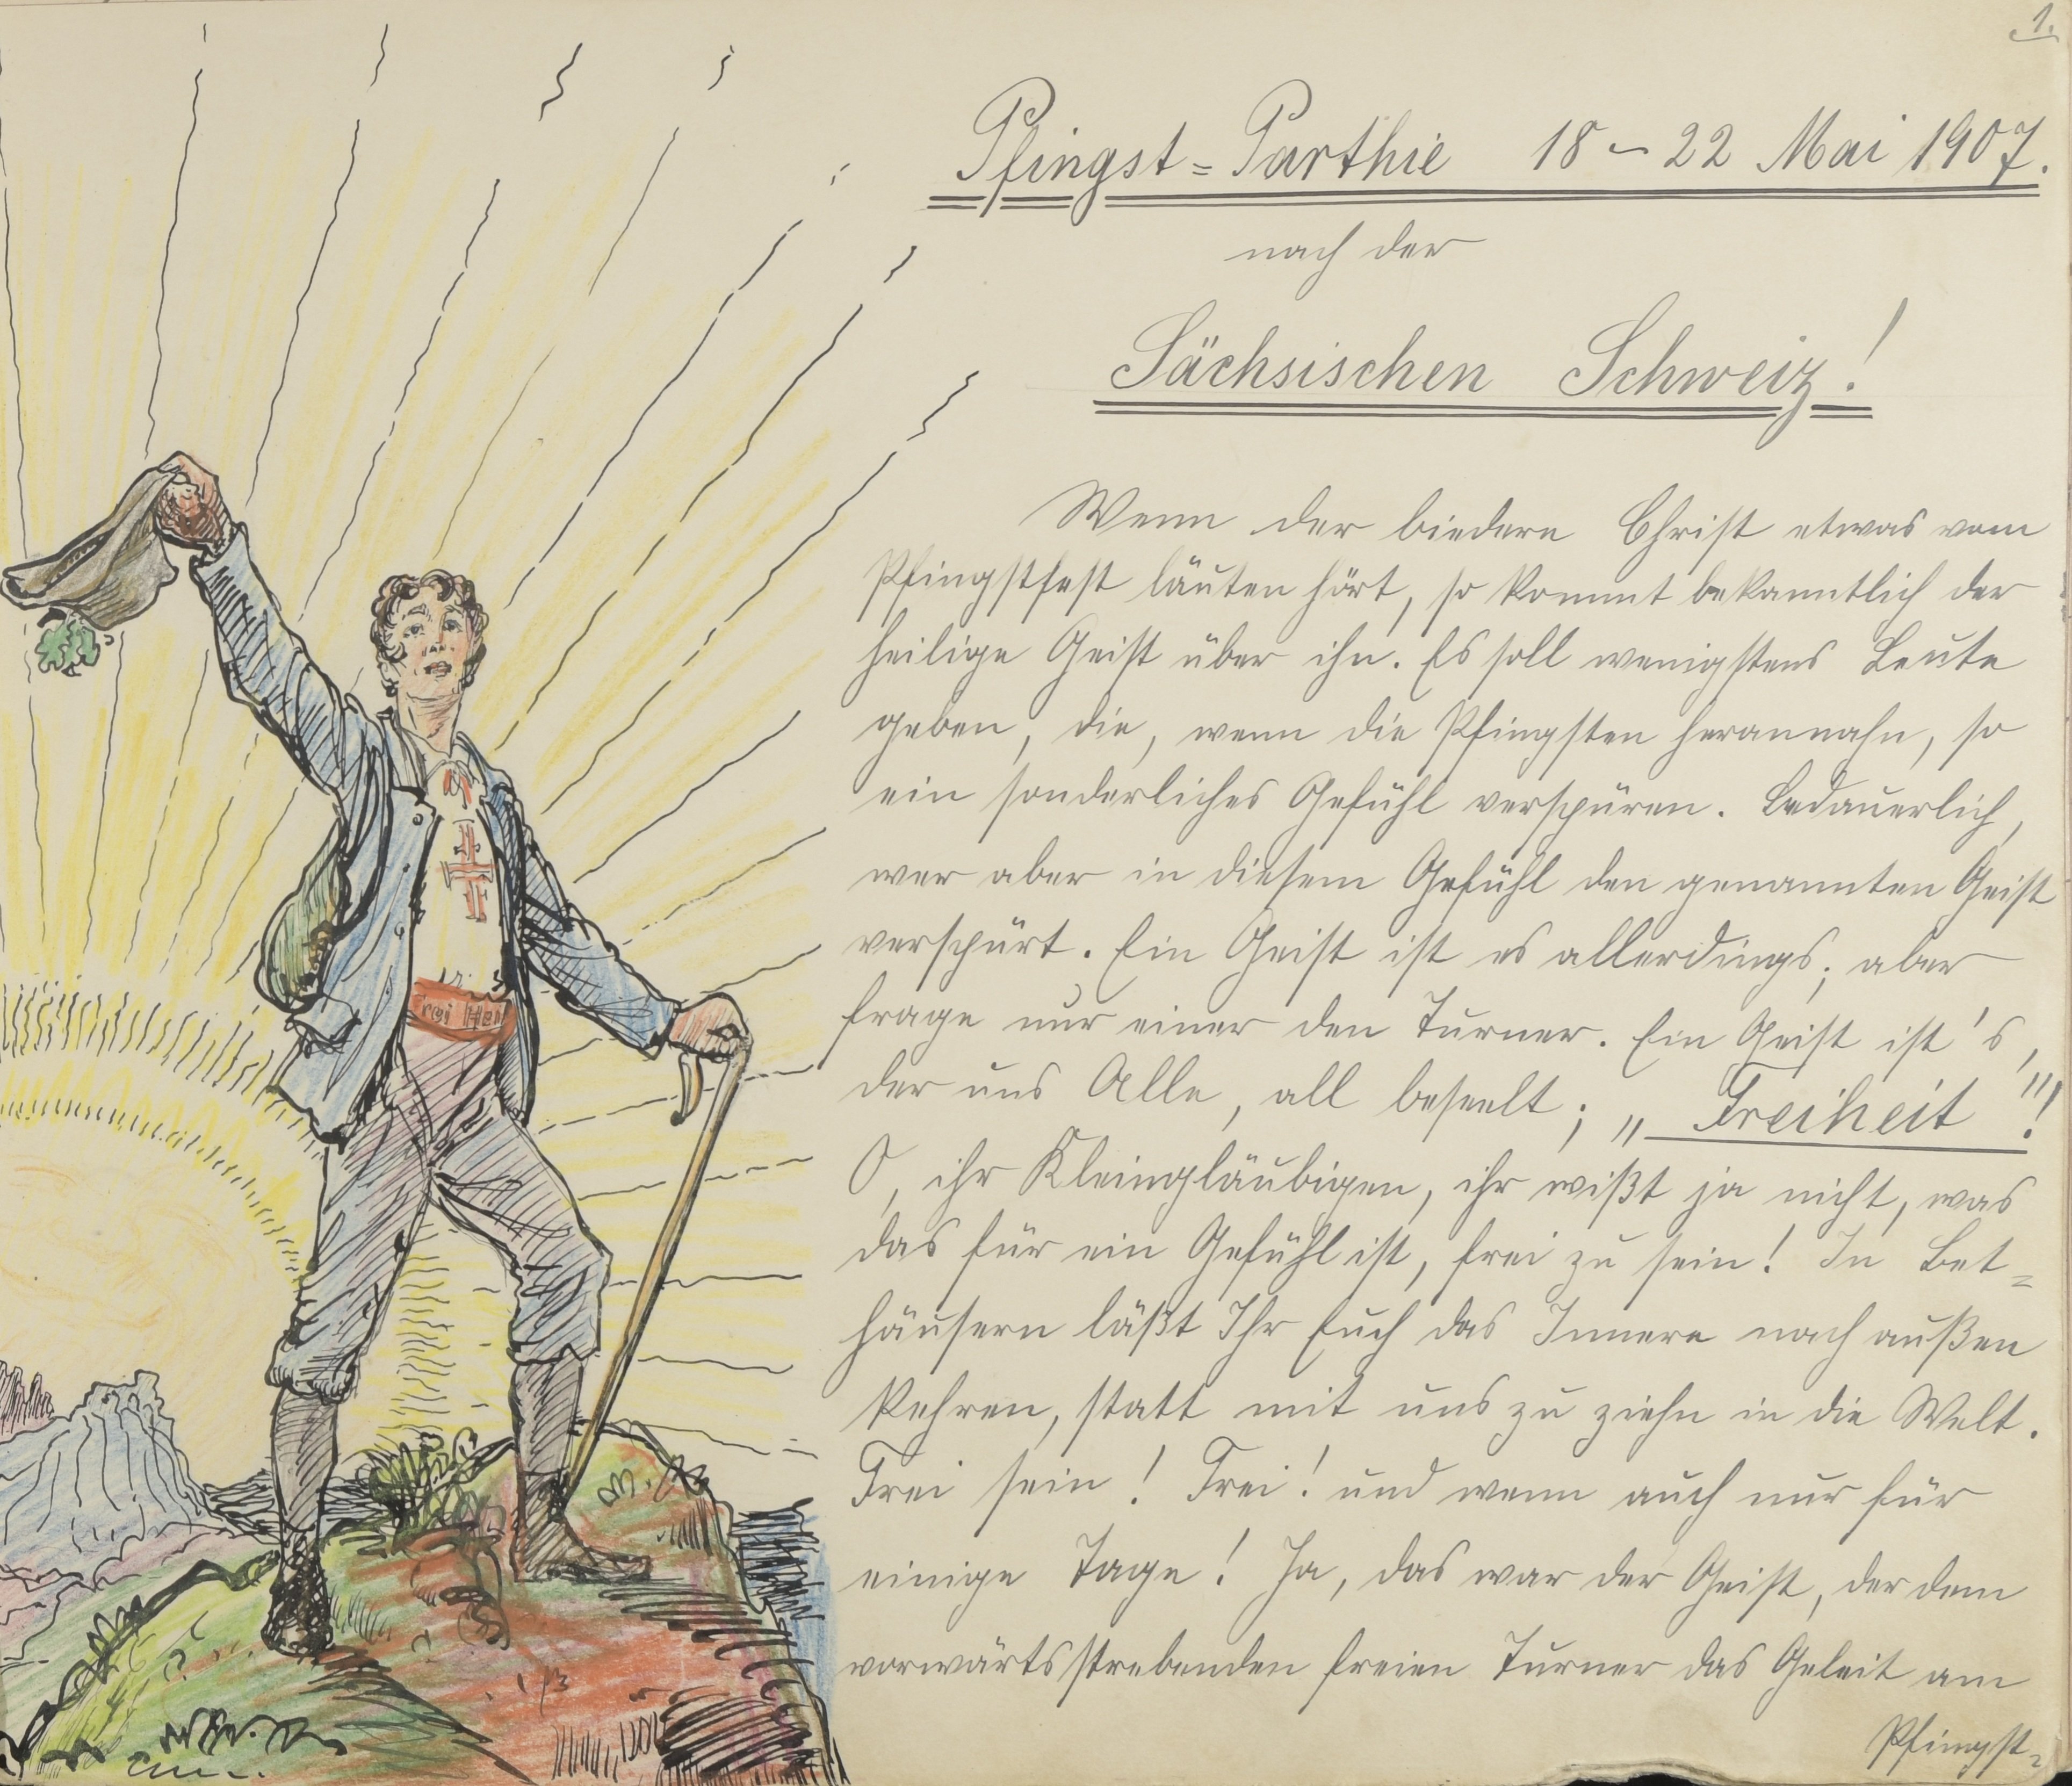 1.
Pfingst=Parthie 18-22 Mai 1907.
nach der
Sächsischen Schweiz!
Wenn der biedere Christ etwas vom
Pfingstfest läuten hört, so kommt bekanntlich der
heilige Geist über ihn. Es soll wenigstens Leute
geben, die, wenn die Pfingsten herannahn, so
ein sonderliches Gefühl verspüren. Bedauerlich,
wer aber in diesem Gefühl den genannten Geist
verspürt. Ein Geist ist es allerdings; aber
frage nur einer den Turner. Ein Geist ist's,
der uns Alle, all beseelt; „Freiheit"!
O, ihr Kleingläubigen, ihr wißt ja nicht, was
das für ein Gefühl ist, frei zu sein! In Bet=
häusern läßt Ihr Euch das Innere nach außen
kehren, statt mit uns zu ziehn in die Welt.
Frei sein! Frei! und wenn auch nur für
einige Tage! Ja, das war der Geist, der dem
vorwärtsstrebenden freien Turner das Geleit am
Pfingst=
rei Hei